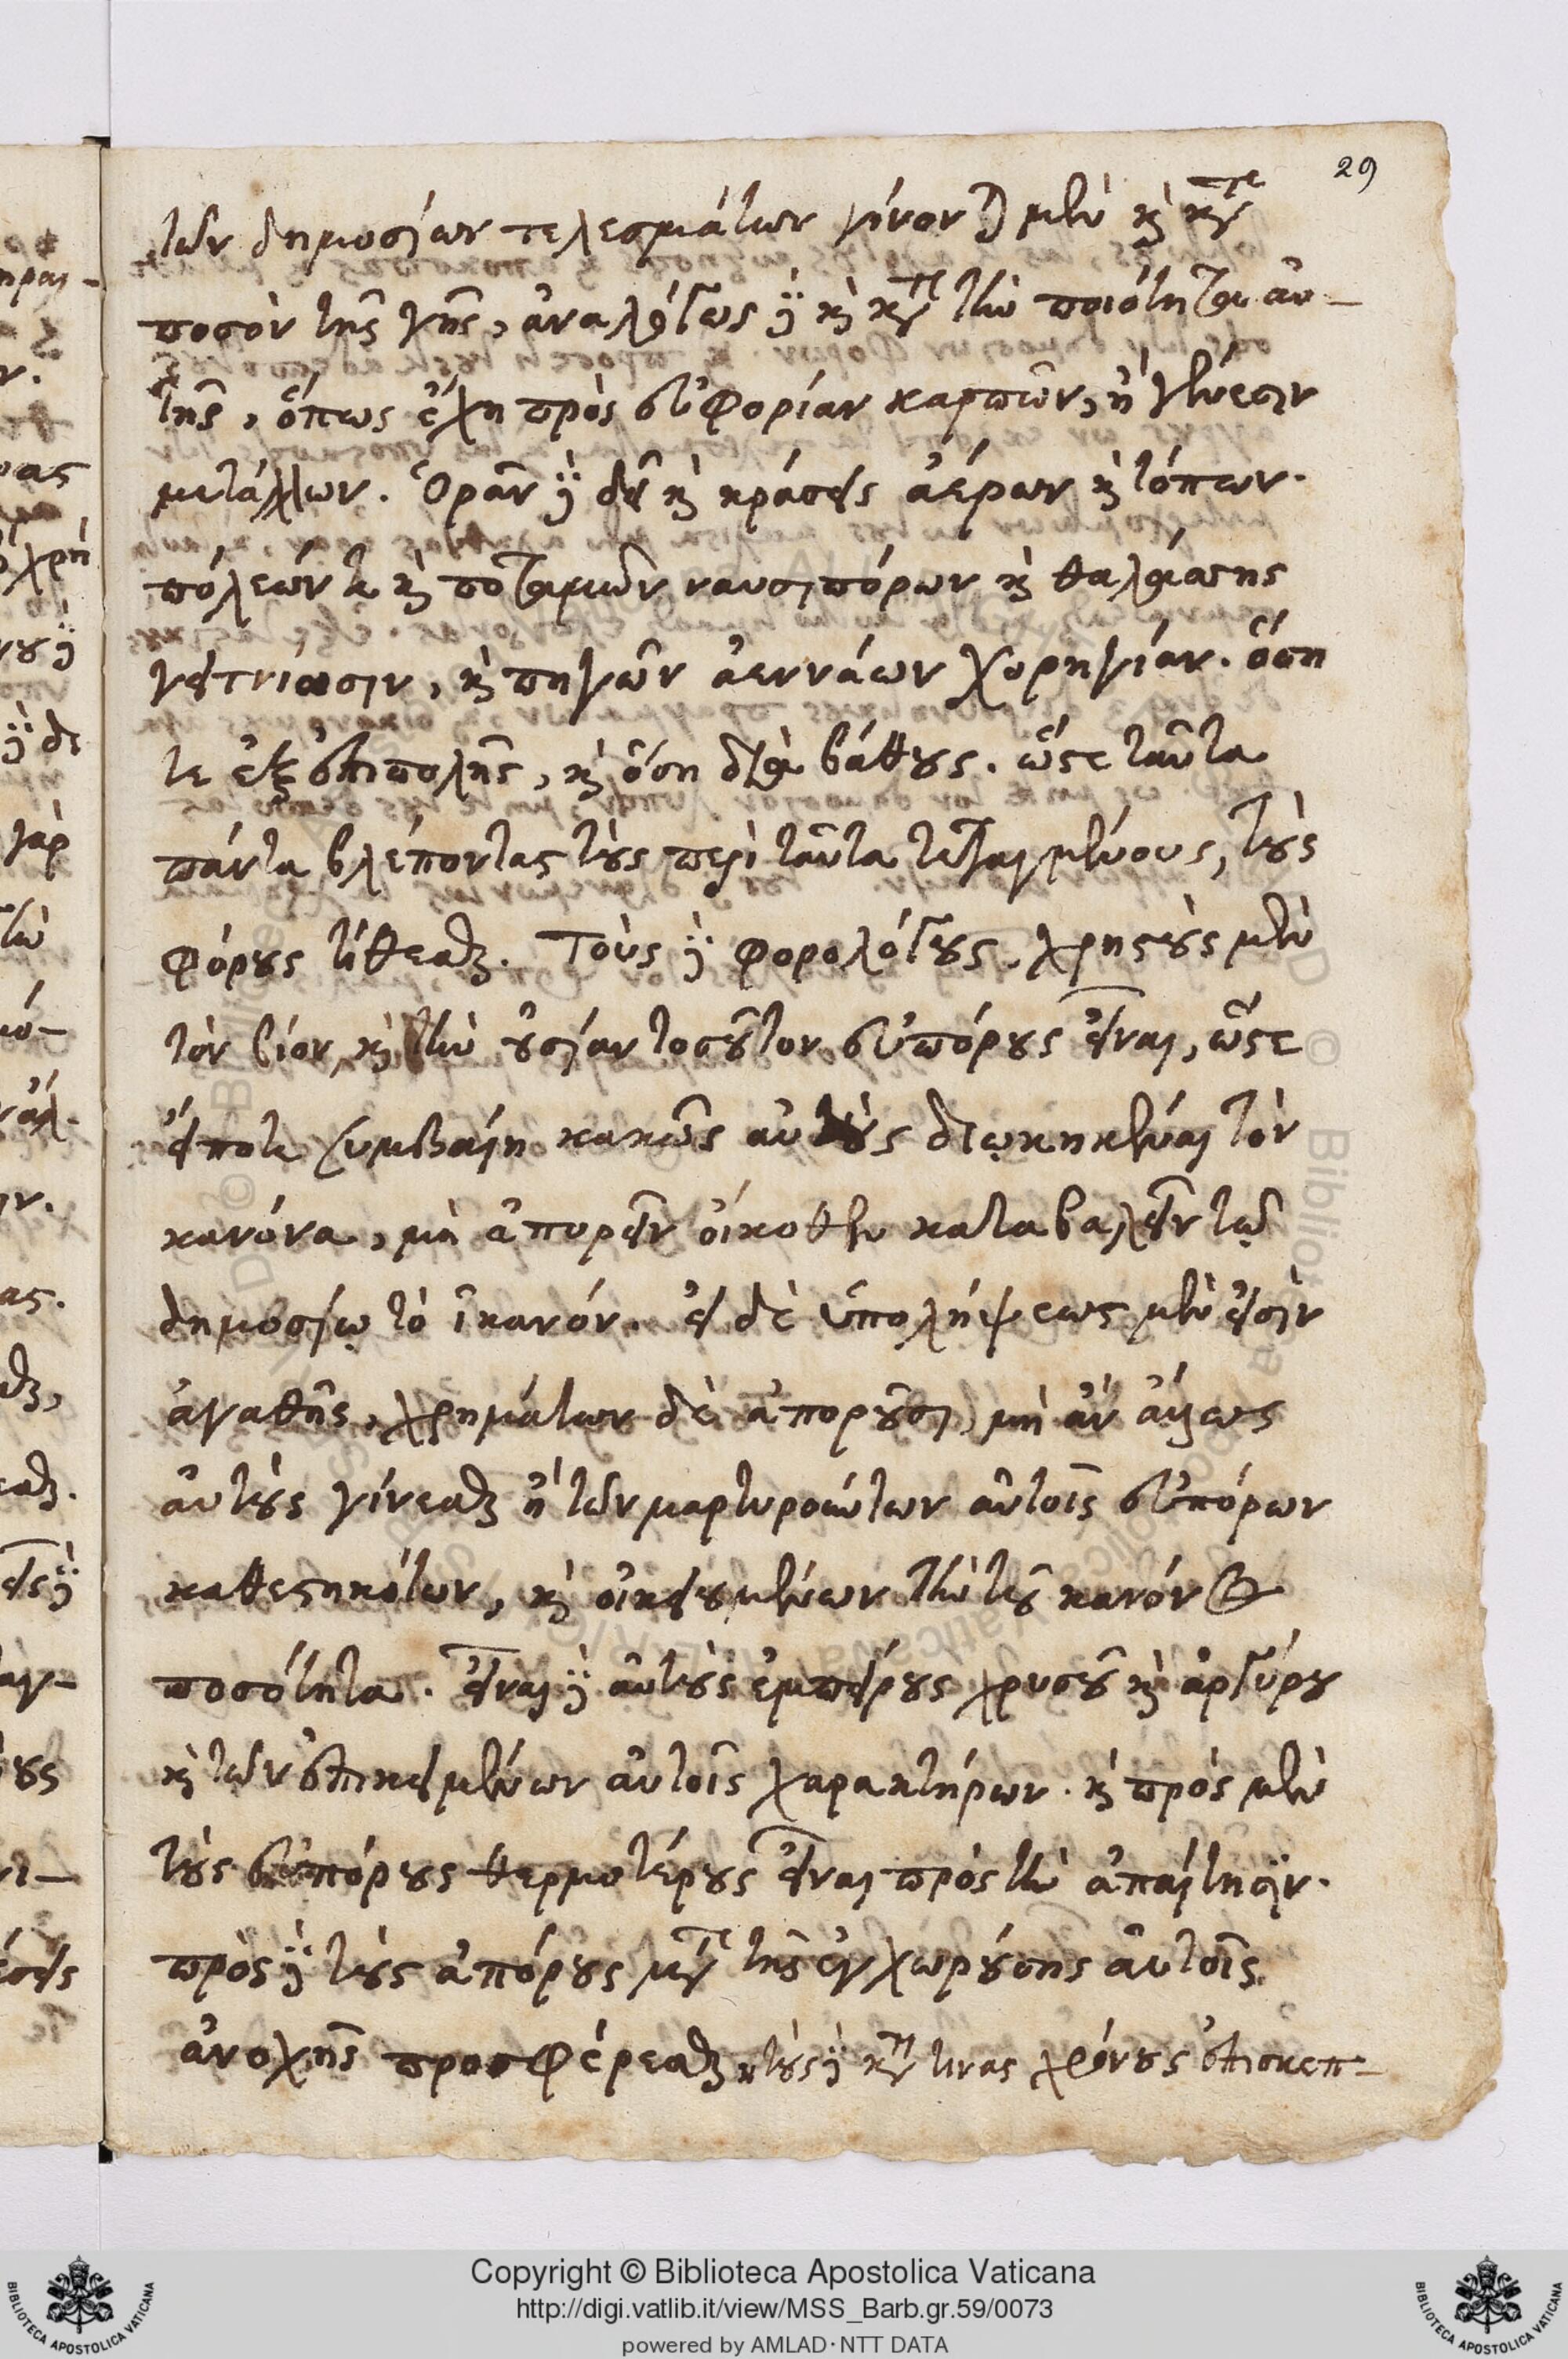 29
τῶν δημοσίων τελεσμάτων γίνονται μὲν καὶ κατὰ
ποσὸν τῆς γῆς, ἀναλόγως δὲ καὶ κατὰ τὴν ποιότητα αὐ-
τῆς, ὅπως ἔχῃ πρὸς εὐφορίαν καρπῶν, ἢ γένεσιν
μετάλλων. Ὁρᾶν δὲ δεῖ καὶ κράσεις ἀέρων καὶ τόπων.
πόλεών τε καὶ ποταμῶν ναυσιπόρων καὶ θαλάσσης
γειτνίασιν, καὶ πηγῶν ἀεννάων χορηγίαν. ὅση
τε ἐξ ἐπιπολῆς, καὶ ὅση διὰ βάθους. ὥστε ταῦτα
πάντα βλέποντας τοὺς περὶ ταῦτα τεταγμένους, τοὺς
φόρους τίθεσθαι. Τοὺς δὲ φορολόγους, χρηστοὺς μὲν
τὸν βίον, καὶ τὴν οὐσίαν τοσοῦτον εὐπόρους εἶναι, ὥστε
εἴποτε συμβαίη κακῶς αὐτοὺς διῳκηκέναι τὸν
κανόνα, μὴ ἀπορεῖν οἴκοθεν καταβαλεῖν τῷ
δημοσίῳ τὸ ἱκανόν. εἰ δὲ ὑπολήψεως μὲν εἰσὶν
ἀγαθῆς, χρημάτων δὲ ἀποροῦσι, μὴ ἂν ἄλλως
αὐτοὺς γίνεσθαι ἢ τῶν μαρτυρούντων αὐτοῖς εὐπόρων
καθεστηκότων, καὶ οἰκειουμένων τὴν τοῦ κανόνος
ποσότητα. εἶναι δὲ αὐτοὺς ἐμπείρους χρυσοῦ καὶ ἀργύρου
καὶ τῶν ἐπικειμένων αὐτοῖς χαρακτήρων. καὶ πρὸς μὲν
τοὺς εὐπόρους θερμοτέρους εἶναι πρὸς τὴν ἀπαίτησιν.
πρὸς δὲ τοὺς ἀπόρους μετὰ τῆς ἐγχωρούσης αὐτοῖς
ἀνοχῆς προσφέρεσθαι, τοὺς δὲ κατά τινας χρόνους ἐπισκεπ-
Copyright © Biblioteca Apostolica Vaticana
http://digi.vatlib.it/view/MSS_Barb.gr.59/0073
powered by AMLAD·NTT DATA
BIBLIOTECA APOSTOLICA VATICANA
BIBLIOTECA APOSTOLICA VATICANA